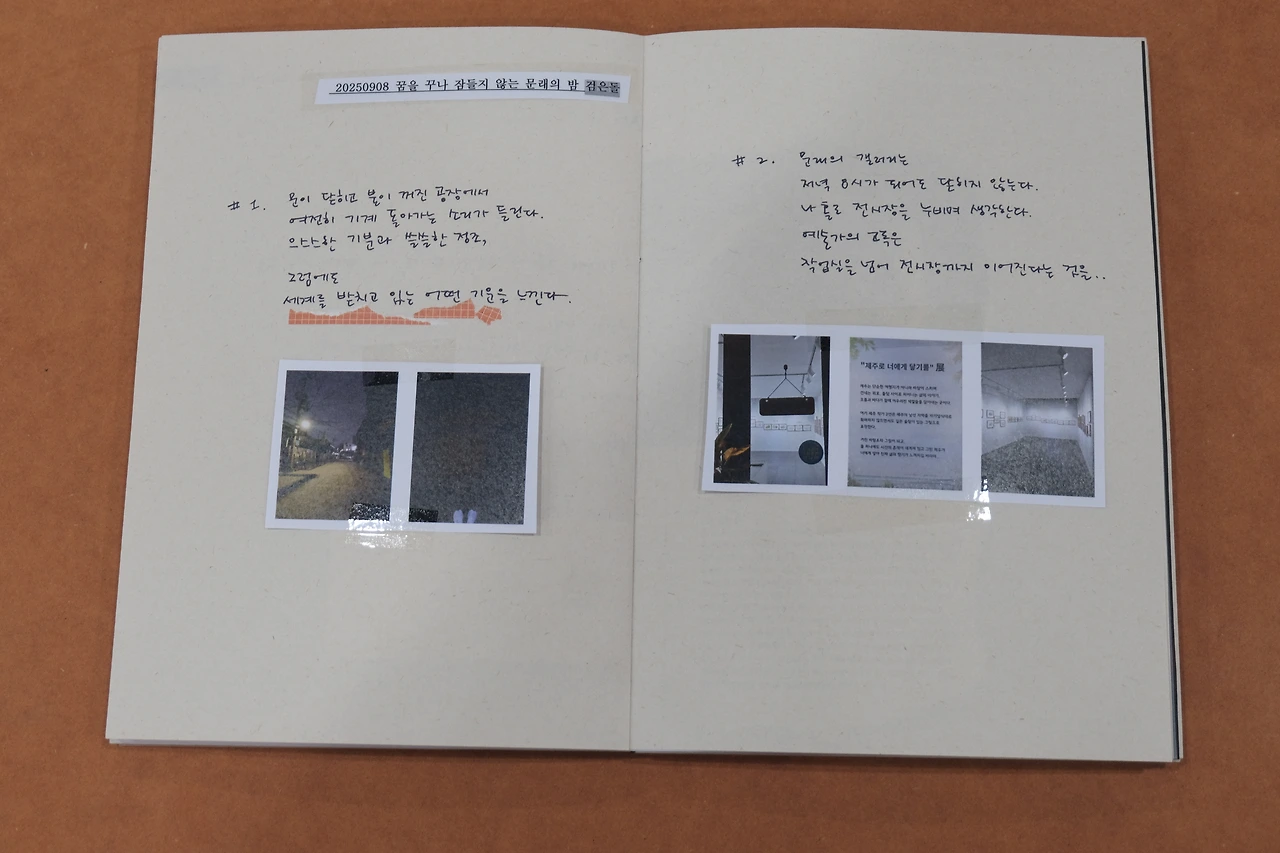 20250908 꿈을 꾸나 잠들지 않는 문래의 밤 검은돌
#1.
문이 닫히고 불이 꺼진 공장에서
여전히 기계 돌아가는 소리가 들린다.
으스스한 기분과 쓸쓸한 정조,
그럼에도
세계를 받치고 있는 어떤 기운을 느낀다.
#2. 문래의 갤러리는
저녁 8시가 되어도 닫히지 않는다.
나 홀로 전시장을 누비며 생각한다.
예술가의 고독은
작업실을 넘어 전시장까지 이어진다는 것을..
"제주로 너에게 닿기를" 展